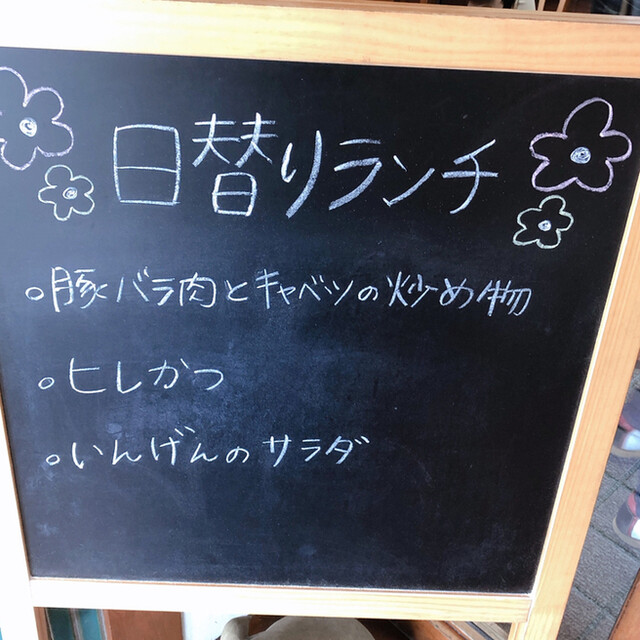 日替りランチ
。豚バラ肉とキャベツの炒め物
。ヒレかつ
。いんげんのサラダ